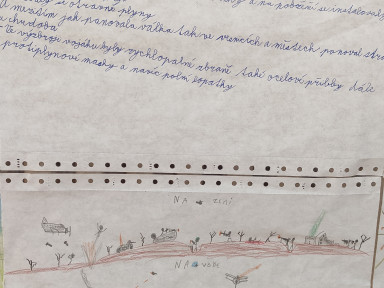 se otravné plyny
A mezitím jak panovala válka tak ve vesnicích a městech panoval
a chudoba
Ve výzbroji vojáků byly rychlopalné zbraně také ocelové přilby dále
protiplynové masky a navíc polní lopatky
NA ZEMI
NA VODĚ